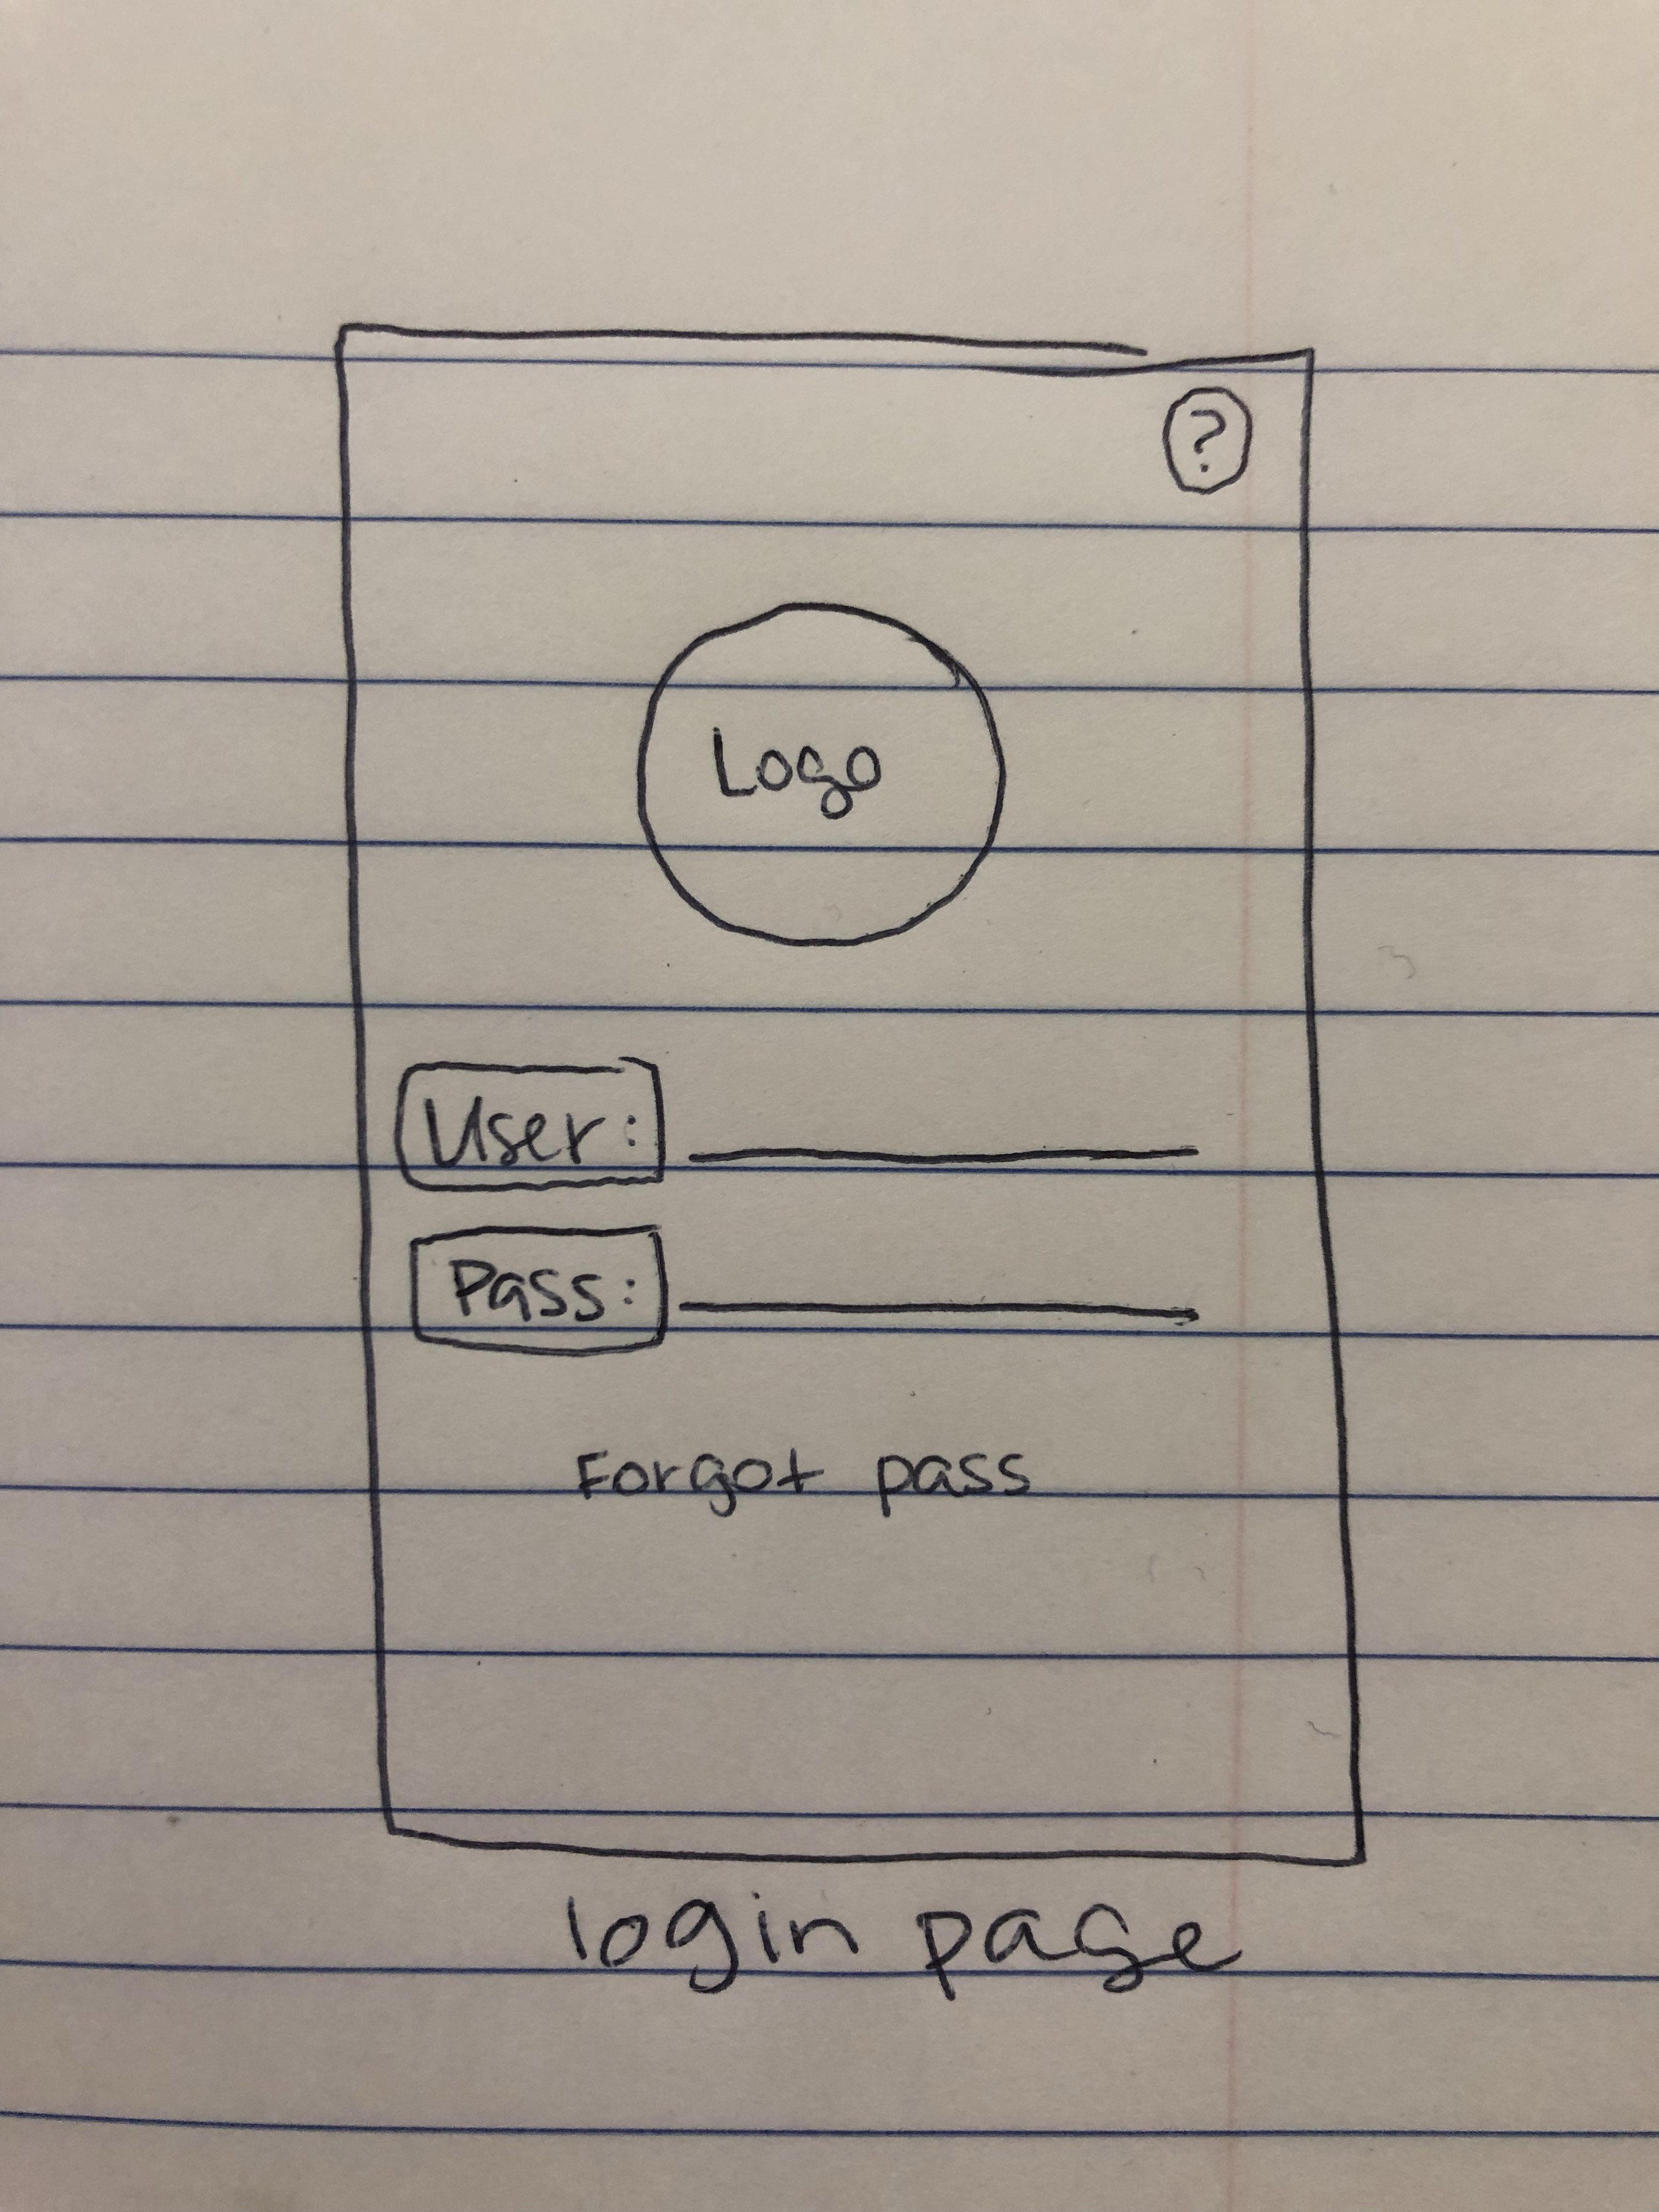 ?
Logo
User:
Pass:
Forgot pass
login page